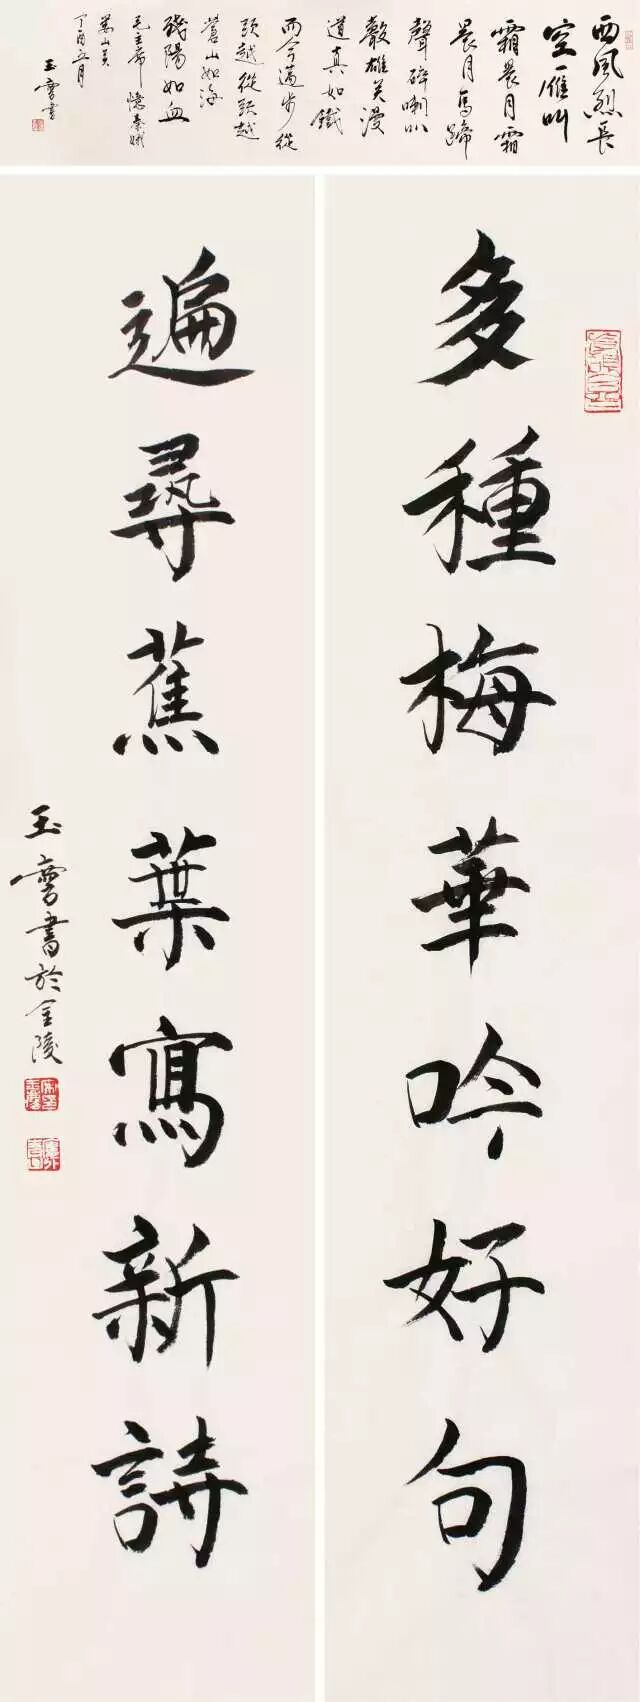 西风烈長
空雁叫
霜晨月霜
晨月馬蹄
聲碎喇叭
聲雄关漫
道真如鐵
而今邁步從
頭越從頭越
蒼山如海
殘陽如血
毛主席憶秦娥
婁山关
丁酉五月
玉雪書
多種梅華吟好句
遍尋蕉葉寫新詩
玉雪書於金陵